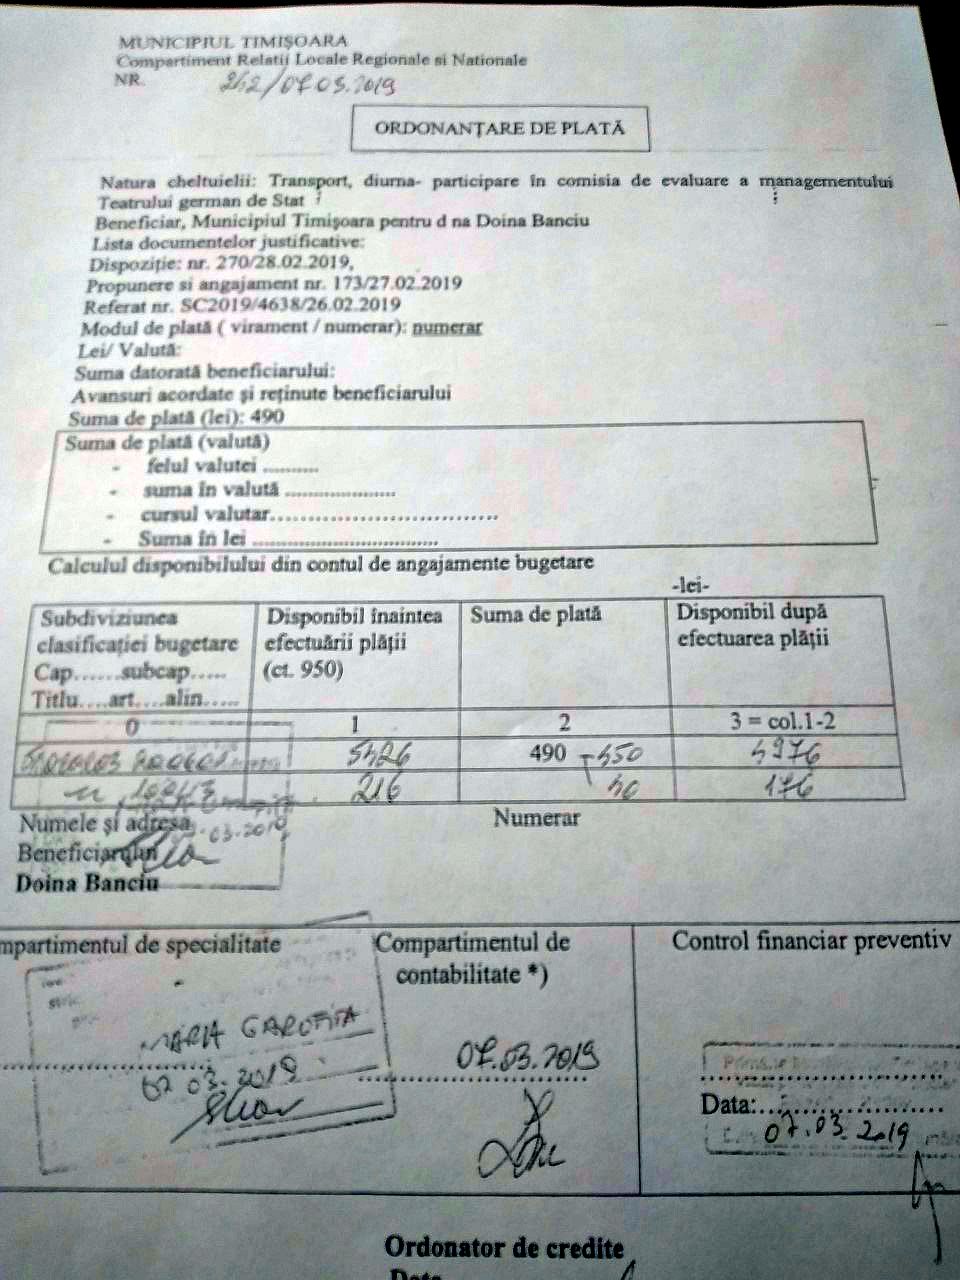 MUNICIPIUL TIMIŞOARA
Compartiment Relatii Locale Regionale si Nationale
NR. 242/07 03.2019
ORDONANŢARE DE PLATĂ
Natura cheltuielii: Transport, diurna- participare în comisia de evaluare a managementului
Teatrului german de Stat
Beneficiar, Municipiul Timişoara pentru d na Doina Banciu
Lista documentelor justificative:
Dispoziţie: nr. 270/28.02.2019,
Propunere si angajament nr. 173/27.02.2019
Referat nr. SC2019/4638/26.02.2019
Modul de plată ( virament / numerar): numerar
Lei/ Valută:
Suma datorată beneficiarului:
Avansuri acordate şi reţinute beneficiarului
Suma de plată (lei): 490
Suma de plată (valută)
- felul valutei ..........
- suma în valută ....................
- cursul valutar.................................
- Suma în lei .................................
Calculul disponibilului din contul de angajamente bugetare
-lei-
Subdiviziunea clasificaţiei bugetare Cap......subcap..... Titlu....art....alin..... Disponibil înaintea efectuării plăţii (ct. 950) Suma de plată Disponibil după efectuarea plăţii
0 1 2 3 = col.1-2
5426 490 - 450 4976
216 40 176
Numele şi adresa Numerar
03.2019
Beneficiarului
Doina Banciu
mpartimentul de specialitate Compartimentul de contabilitate *) Control financiar preventiv
MARIA GAROFITA
07 03.2019
07.03.2019
Data:......................
07.03.2019
Ordonator de credite
Data